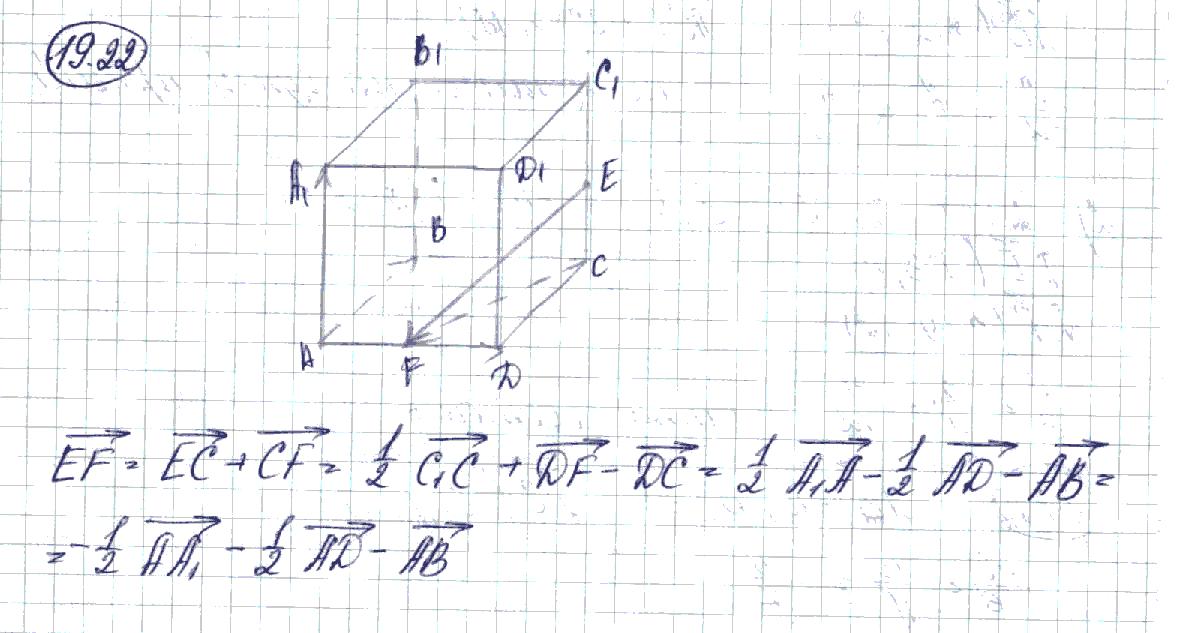 19.22
B1
C1
A1
D1
E
B
C
A
F
D
EF = EC + CF = 1/2 C1C + DF - DC = 1/2 A1A - 1/2 AD - AB =
= - 1/2 AA1 - 1/2 AD - AB